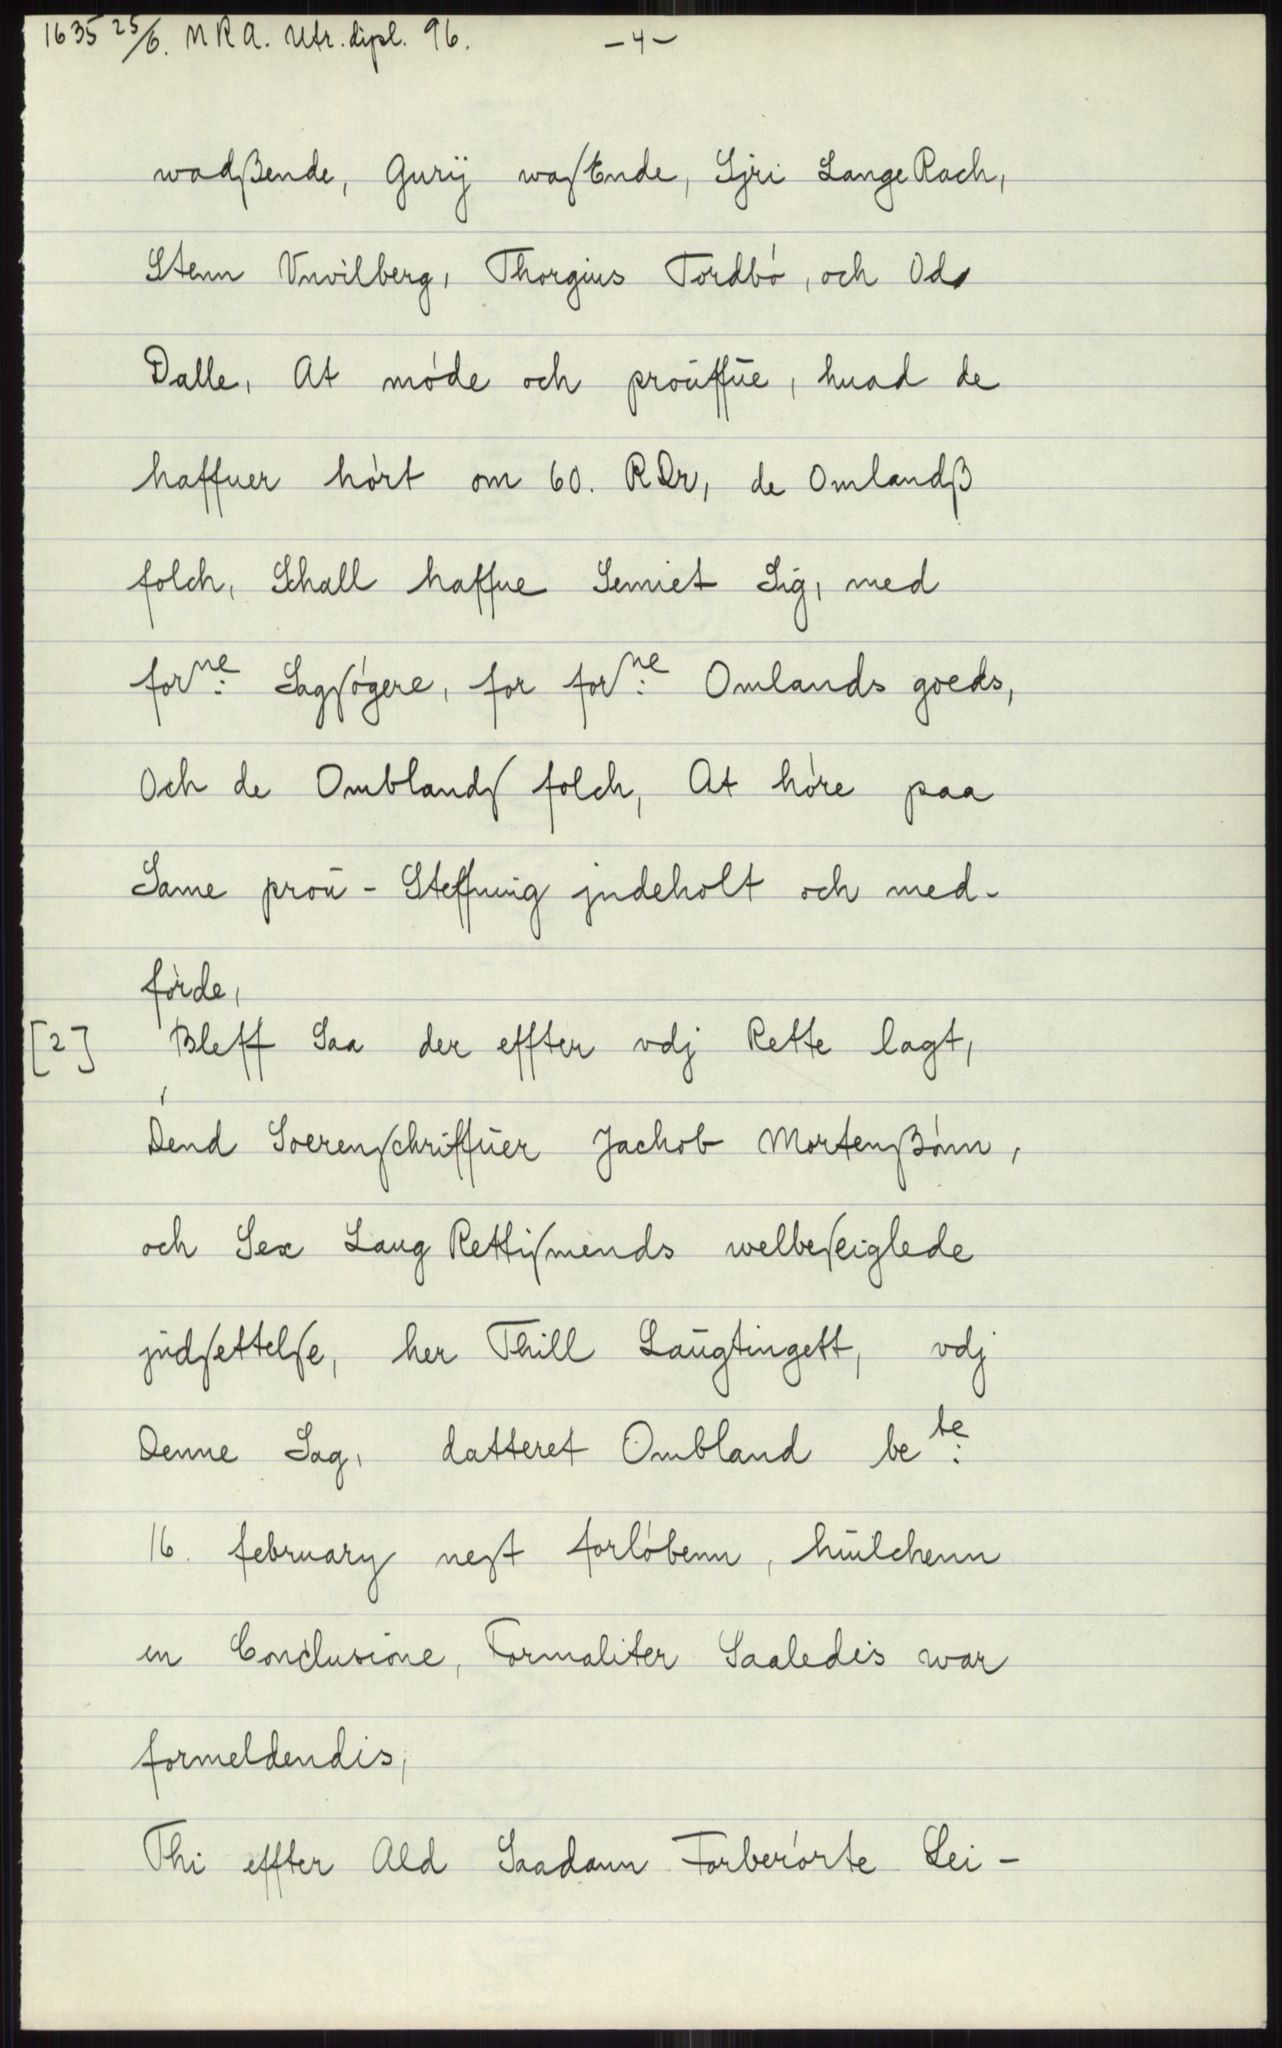 1635 25/6. NRA. Utr. dipl. 96. - 4 -
wadßende, Gurÿ waſtende, Sjri Lange Rach,
Stenn Vnvilberg, Thorgius Tordbó, och Od
Dalle, At móde och proūffūe, huad de
haffuer hórt om 60. RDr, de Omlandß
folch, Schall haffue Semiet Sig, med
forne: Sagſógere, for forne: Omlands goeds,
Och de Omblandſ folch, At hóre paa
Same proū - Steffning jndeholt och med-
fórde,
[2] Bleff Saa der effter vdj Rette lagt,
Dend Soerenſchriffūer Jachob Mortenßónn,
och Sex Laug Rettiſmends welbeſeiglede
jndſettelſe, her Thill Laūgtingett, vdj
Denne Sag, datteret Ombland bete:
16. february neſt forlóbenn, hūilchenn
en Conclusione, Formaliter Saaledis war
formeldendis,
Thi effter Ald Saadann Forberórte Lei-